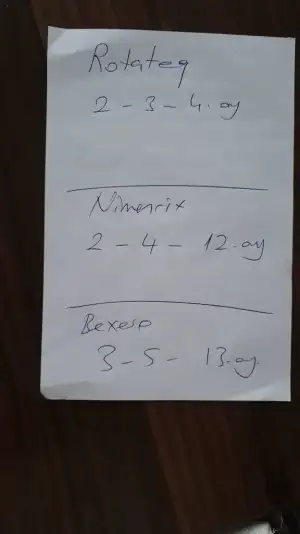 Rotateq
2 - 3 - 4. ay
Nimenrix
2 - 4 - 12. ay
Bexero
3 - 5 - 13. ay